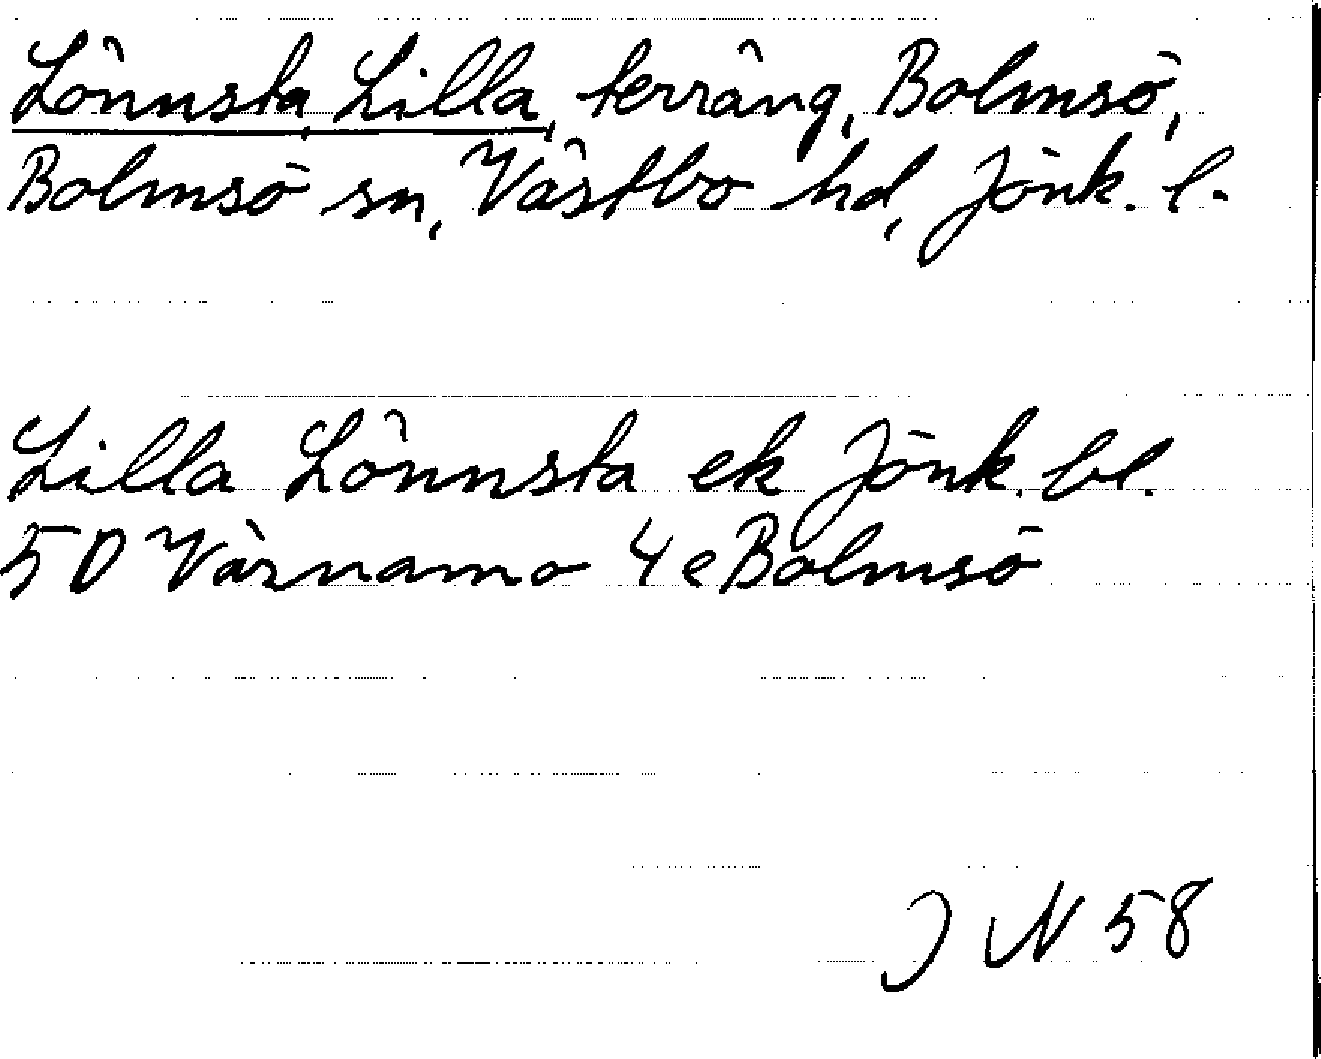 Lönnsta, Lilla, terräng, Bolmsö,
Bolmsö sn, Västbo hd, Jönk. l.
Lilla Lönnsta ek Jönk. bl.
5D Värnamo 4e Bolmsö
J N 58